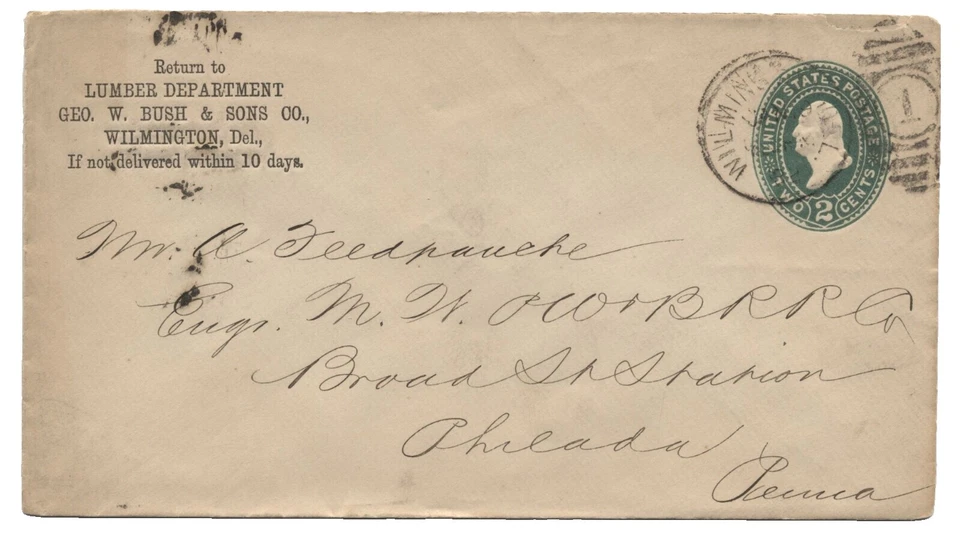 Return to
LUMBER DEPARTMENT
GEO. W. BUSH & SONS CO.,
WILMINGTON, Del.,
If not delivered within 10 days.
WILMING
1
UNITED STATES POSTAGE
TWO 2 CENTS
Mr. A. Feedpauche
Engr. M. W. PW&B R R Co
Broad St Station
Philada
Penna